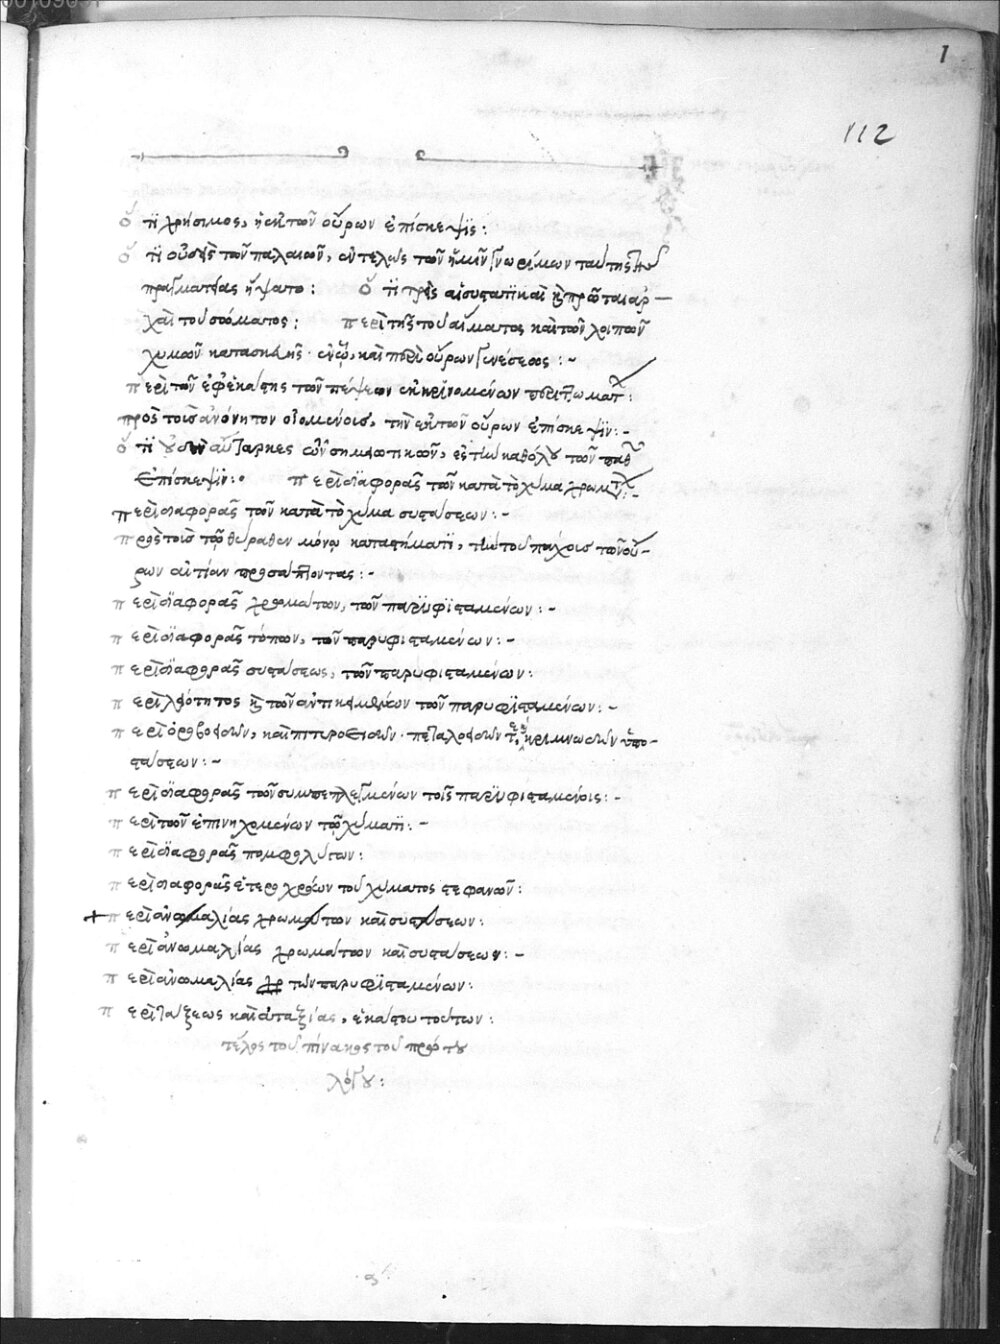 1
112
ὅτι χρήσιμος, ἡ ἐκ τῶν οὔρων ἐπίσκεψις:
ὅτι οὐδεὶς τῶν παλαιῶν, ἐντελῶς τῶν ἡμῖν γνωρίμων ταύτης τῆς
πραγματείας ἥψατο: ὅτι τρεῖς αἱ συστατικαὶ καὶ πρῶται ἀρ-
χαὶ τοῦ σώματος: περὶ τῆς τοῦ αἵματος καὶ τῶν λοιπῶν
χυμῶν κατασκευῆς. ἐν ᾧ, καὶ περὶ οὔρων γενέσεως:-
περὶ τῶν ἐφ' ἑκάστης τῶν πέψεων ἐκκρινομένων περιττωμάτ:
πρὸς τοὺς ἀνόνητον οἰομένοις, τὴν ἐκ τῶν οὔρων ἐπίσκεψιν:-
ἐπίσκεψιν: περὶ διαφορᾶς τῶν κατὰ τὸ χύμα χρωμάτ:-
περὶ διαφορᾶς τῶν κατὰ τὸ χύμα συστάσεων:-
πρὸς τοὺς τῷ θύραθεν μόνῳ καταστήματι, τὴν τοῦ πάχους τῶν οὔ-
ρων αἰτίαν προσάπτοντας:-
περὶ διαφορᾶς χρωμάτων, τῶν παρυφισταμένων:-
περὶ διαφορᾶς τόπων, τῶν παρυφισταμένων:-
περὶ διαφορᾶς συστάσεως, τῶν παρυφισταμένων:
περὶ λειότητος καὶ τῶν ἀντικειμένων τῶν παρυφισταμένων:-
περὶ ὀροβοειδῶν, καὶ πιτυροειδῶν. πεταλοειδῶν τε, καὶ κριμνωδῶν ὑπο-
στάσεων:-
περὶ διαφορᾶς τῶν συμπεπλεγμένων τοῖς παρυφισταμένοις:-
περὶ τῶν ἐπινηχομένων τῷ χύματι:-
περὶ διαφορᾶς πομφολύγων:
περὶ διαφορᾶς ἑτεροχρόων τοῦ χύματος στεφανῶν:
περὶ ἀνωμαλίας χρωμάτων καὶ συστάσεων:
περὶ ἀνωμαλίας χρωμάτων καὶ συστάσεων:-
περὶ ἀνωμαλίας τῶν παρυφισταμένων:
περὶ τάξεως καὶ ἀταξίας, ἑκάστου τούτων:
τέλος τοῦ πίνακος τοῦ πρώτου
λόγου: